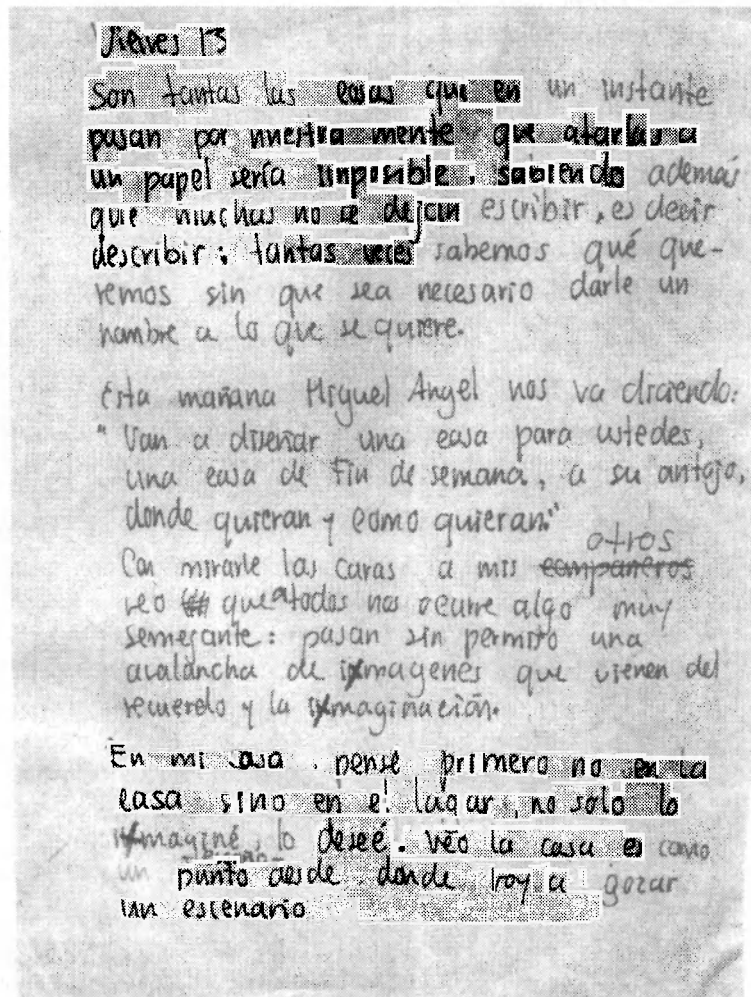 Jueves 13
Son tantas las cosas que en un instante
pasan por nuestra mente que atarlas a
un papel sería imposible, sabiendo además
que muchas no se dejan escribir, es decir
describir; tantas veces sabemos qué que-
remos sin que sea necesario darle un
nombre a lo que se quiere.
Esta mañana Miguel Angel nos va diciendo:
"Van a diseñar una casa para ustedes,
una casa de fin de semana, a su antojo,
donde quieran y como quieran."
otros
Con mirarle las caras a mis compañeros
veo que a todos nos ocurre algo muy
semejante: pasan sin permiso una
avalancha de imagenes que vienen del
recuerdo y la imaginación.
En mi casa, pensé primero no en la
casa sino en el lugar, no solo lo
imaginé, lo deseé. Veo la casa es como
un punto desde donde voy a gozar
un escenario